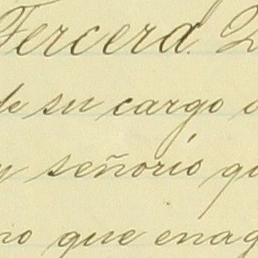 Tercera.
de su cargo
señorio
que enag